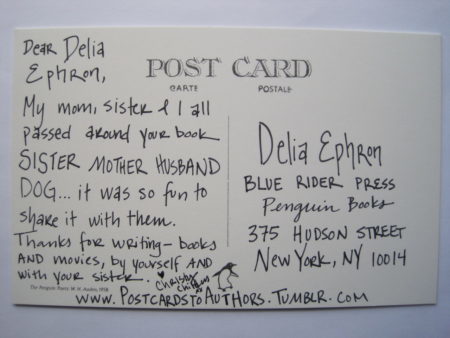 Dear Delia
Ephron,
My mom, sister & I all
passed around your book
SISTER MOTHER HUSBAND
DOG... it was so fun to
share it with them.
Thanks for writing - books
AND movies, by yourself AND
with your sister. ♥
The Penguin Poets: W. H. Auden, 1958
www.PostcardstoAuthors.Tumblr.com
POST CARD
CARTE POSTALE
Delia Ephron
BLUE RIDER PRESS
Penguin Books
375 HUDSON STREET
New York, NY 10014